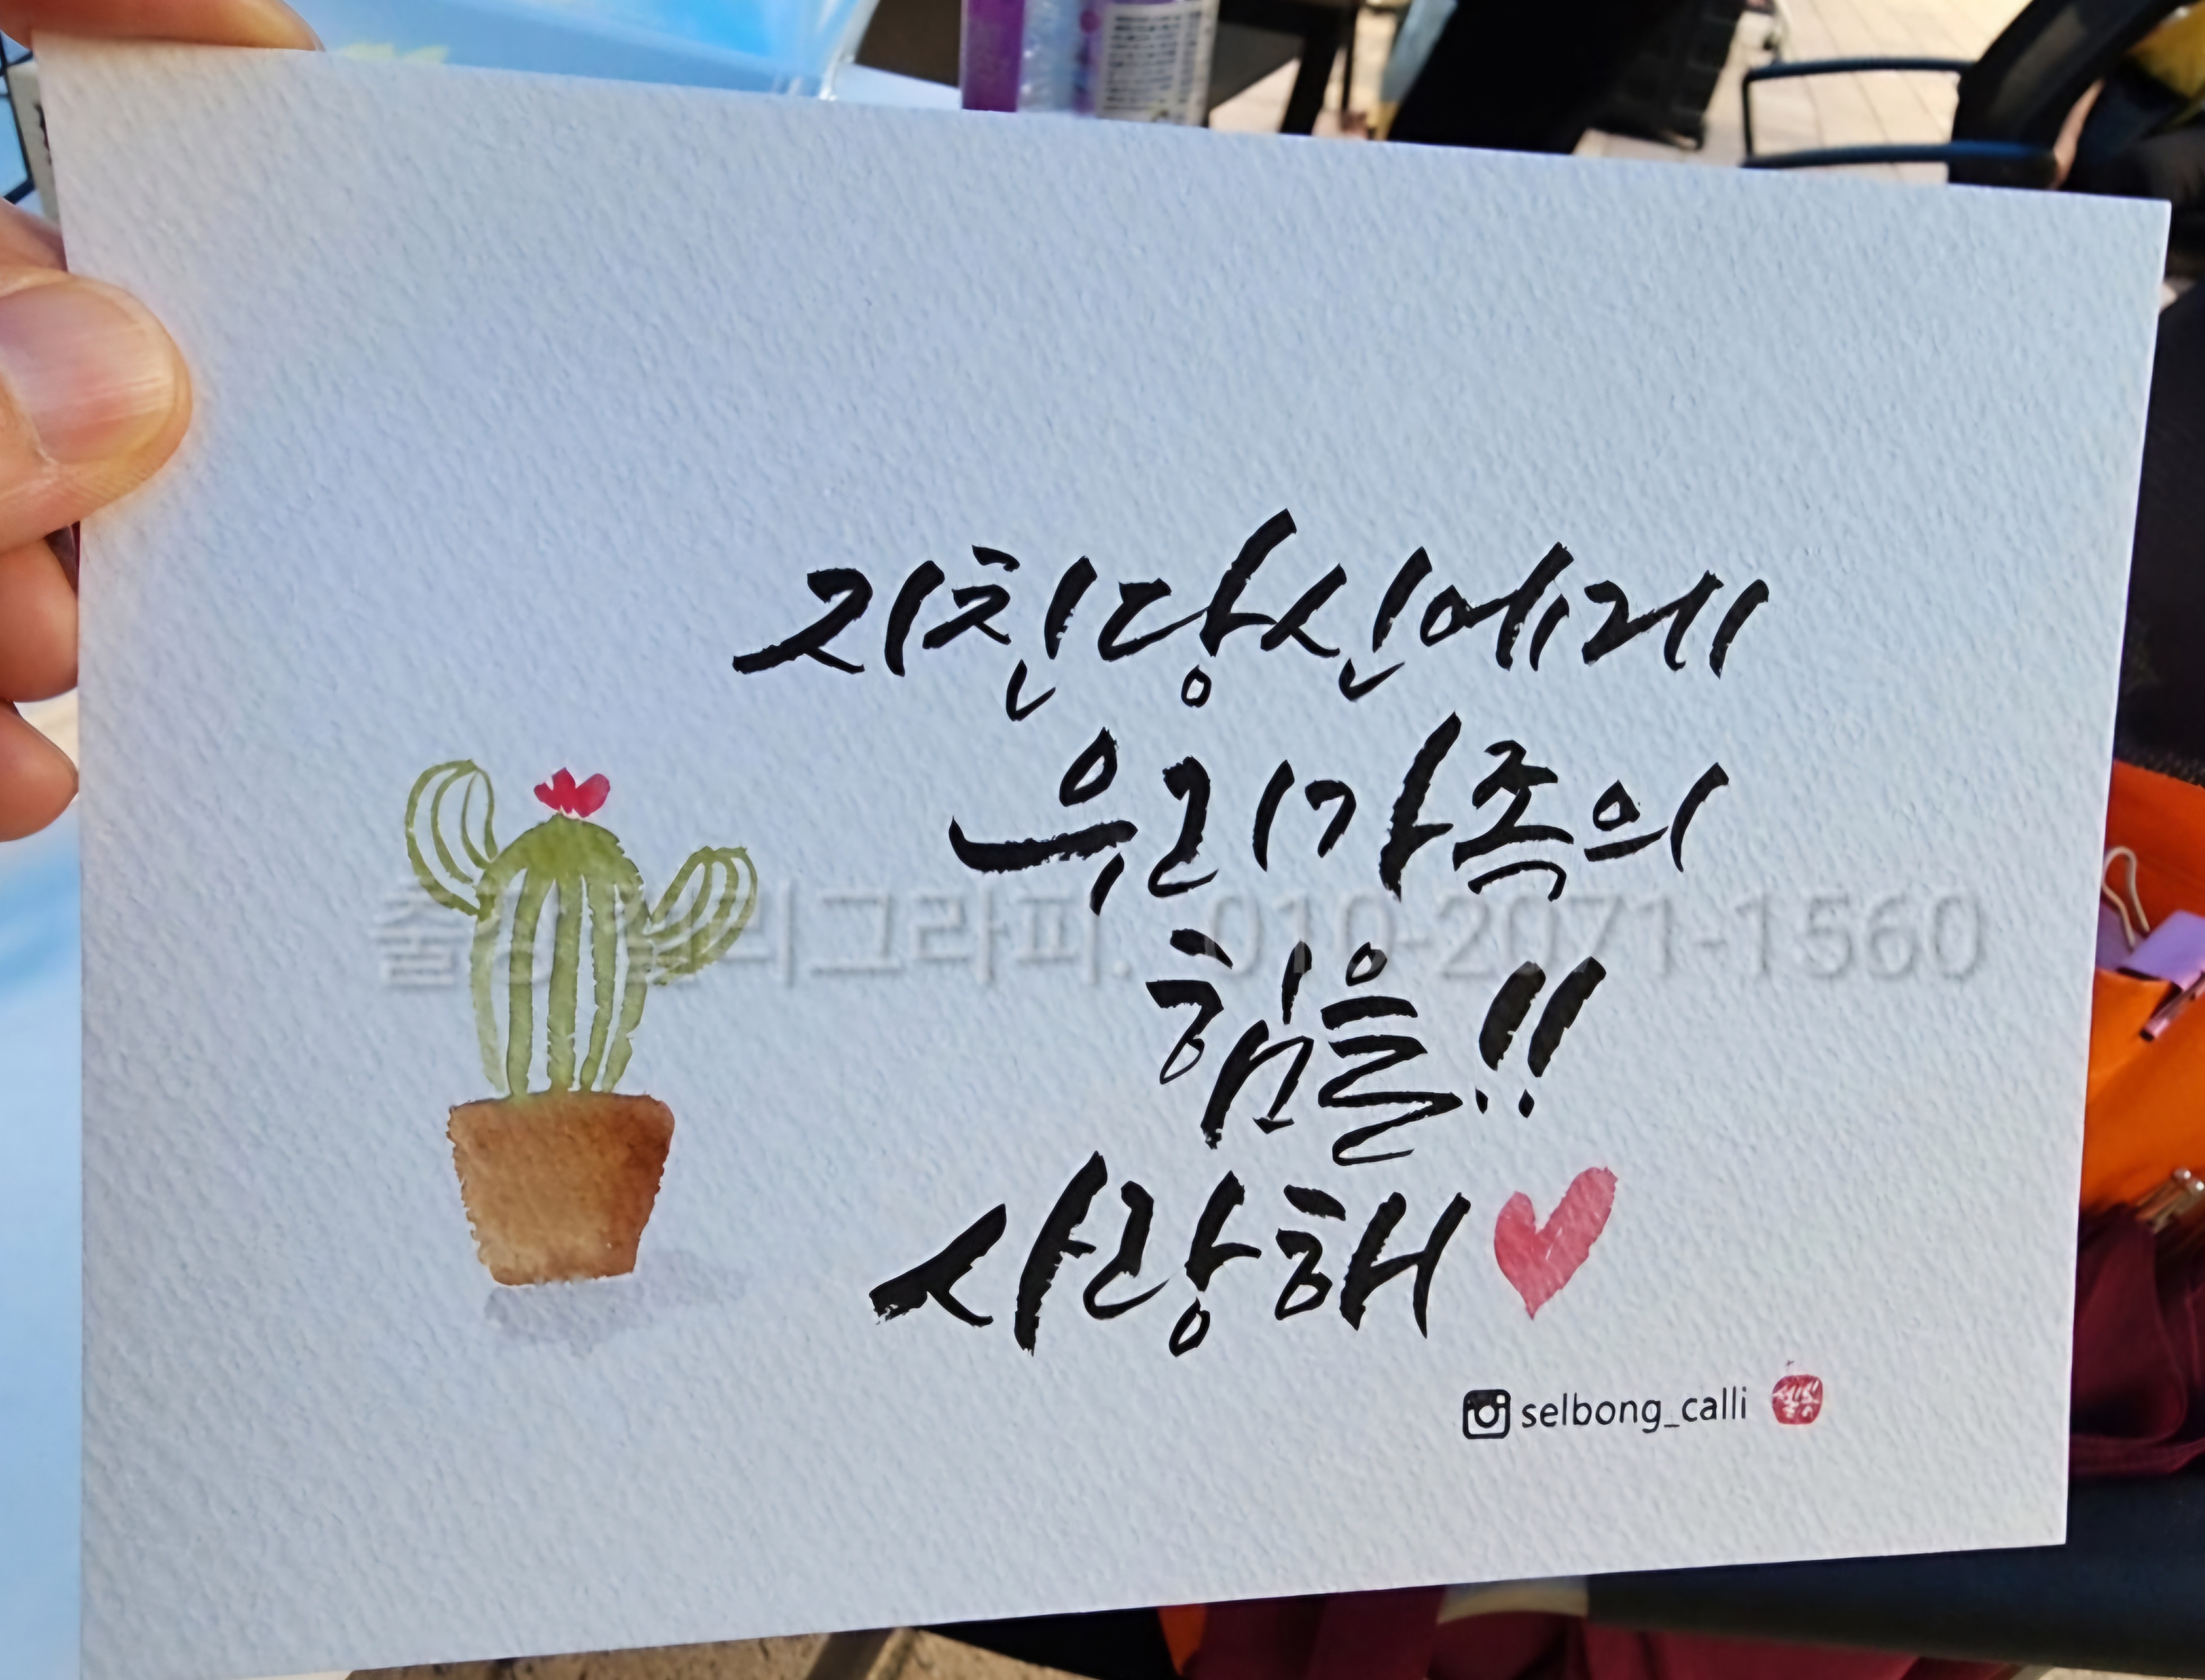 지친당신에게
우리가족의
힘을!!
사랑해
출장캘리그라피. 010-2071-1560
selbong_calli
셀봉